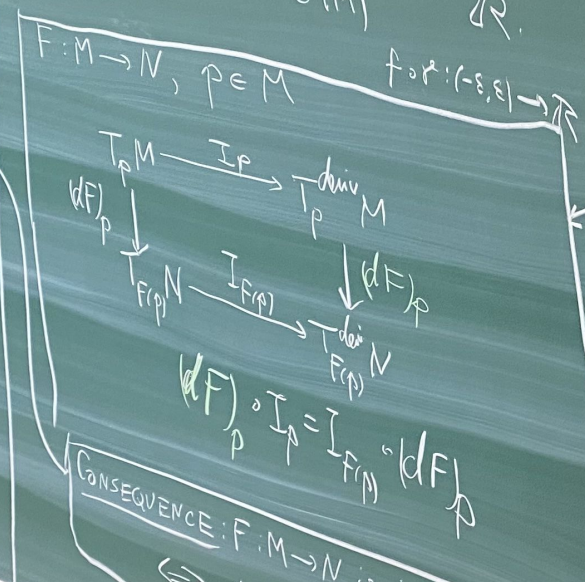 F : M → N, p ∈ M
f∘γ : (-ε, ε) → ℝ
T_p M → I_p → T_p^{deriv} M
(dF)_p ↓ ↓ (dF)_p
T_{F(p)} N → I_{F(p)} → T_{F(p)}^{deri} N
(dF)_p ∘ I_p = I_{F(p)} ∘ (dF)_p
CONSEQUENCE : F : M → N
⇔